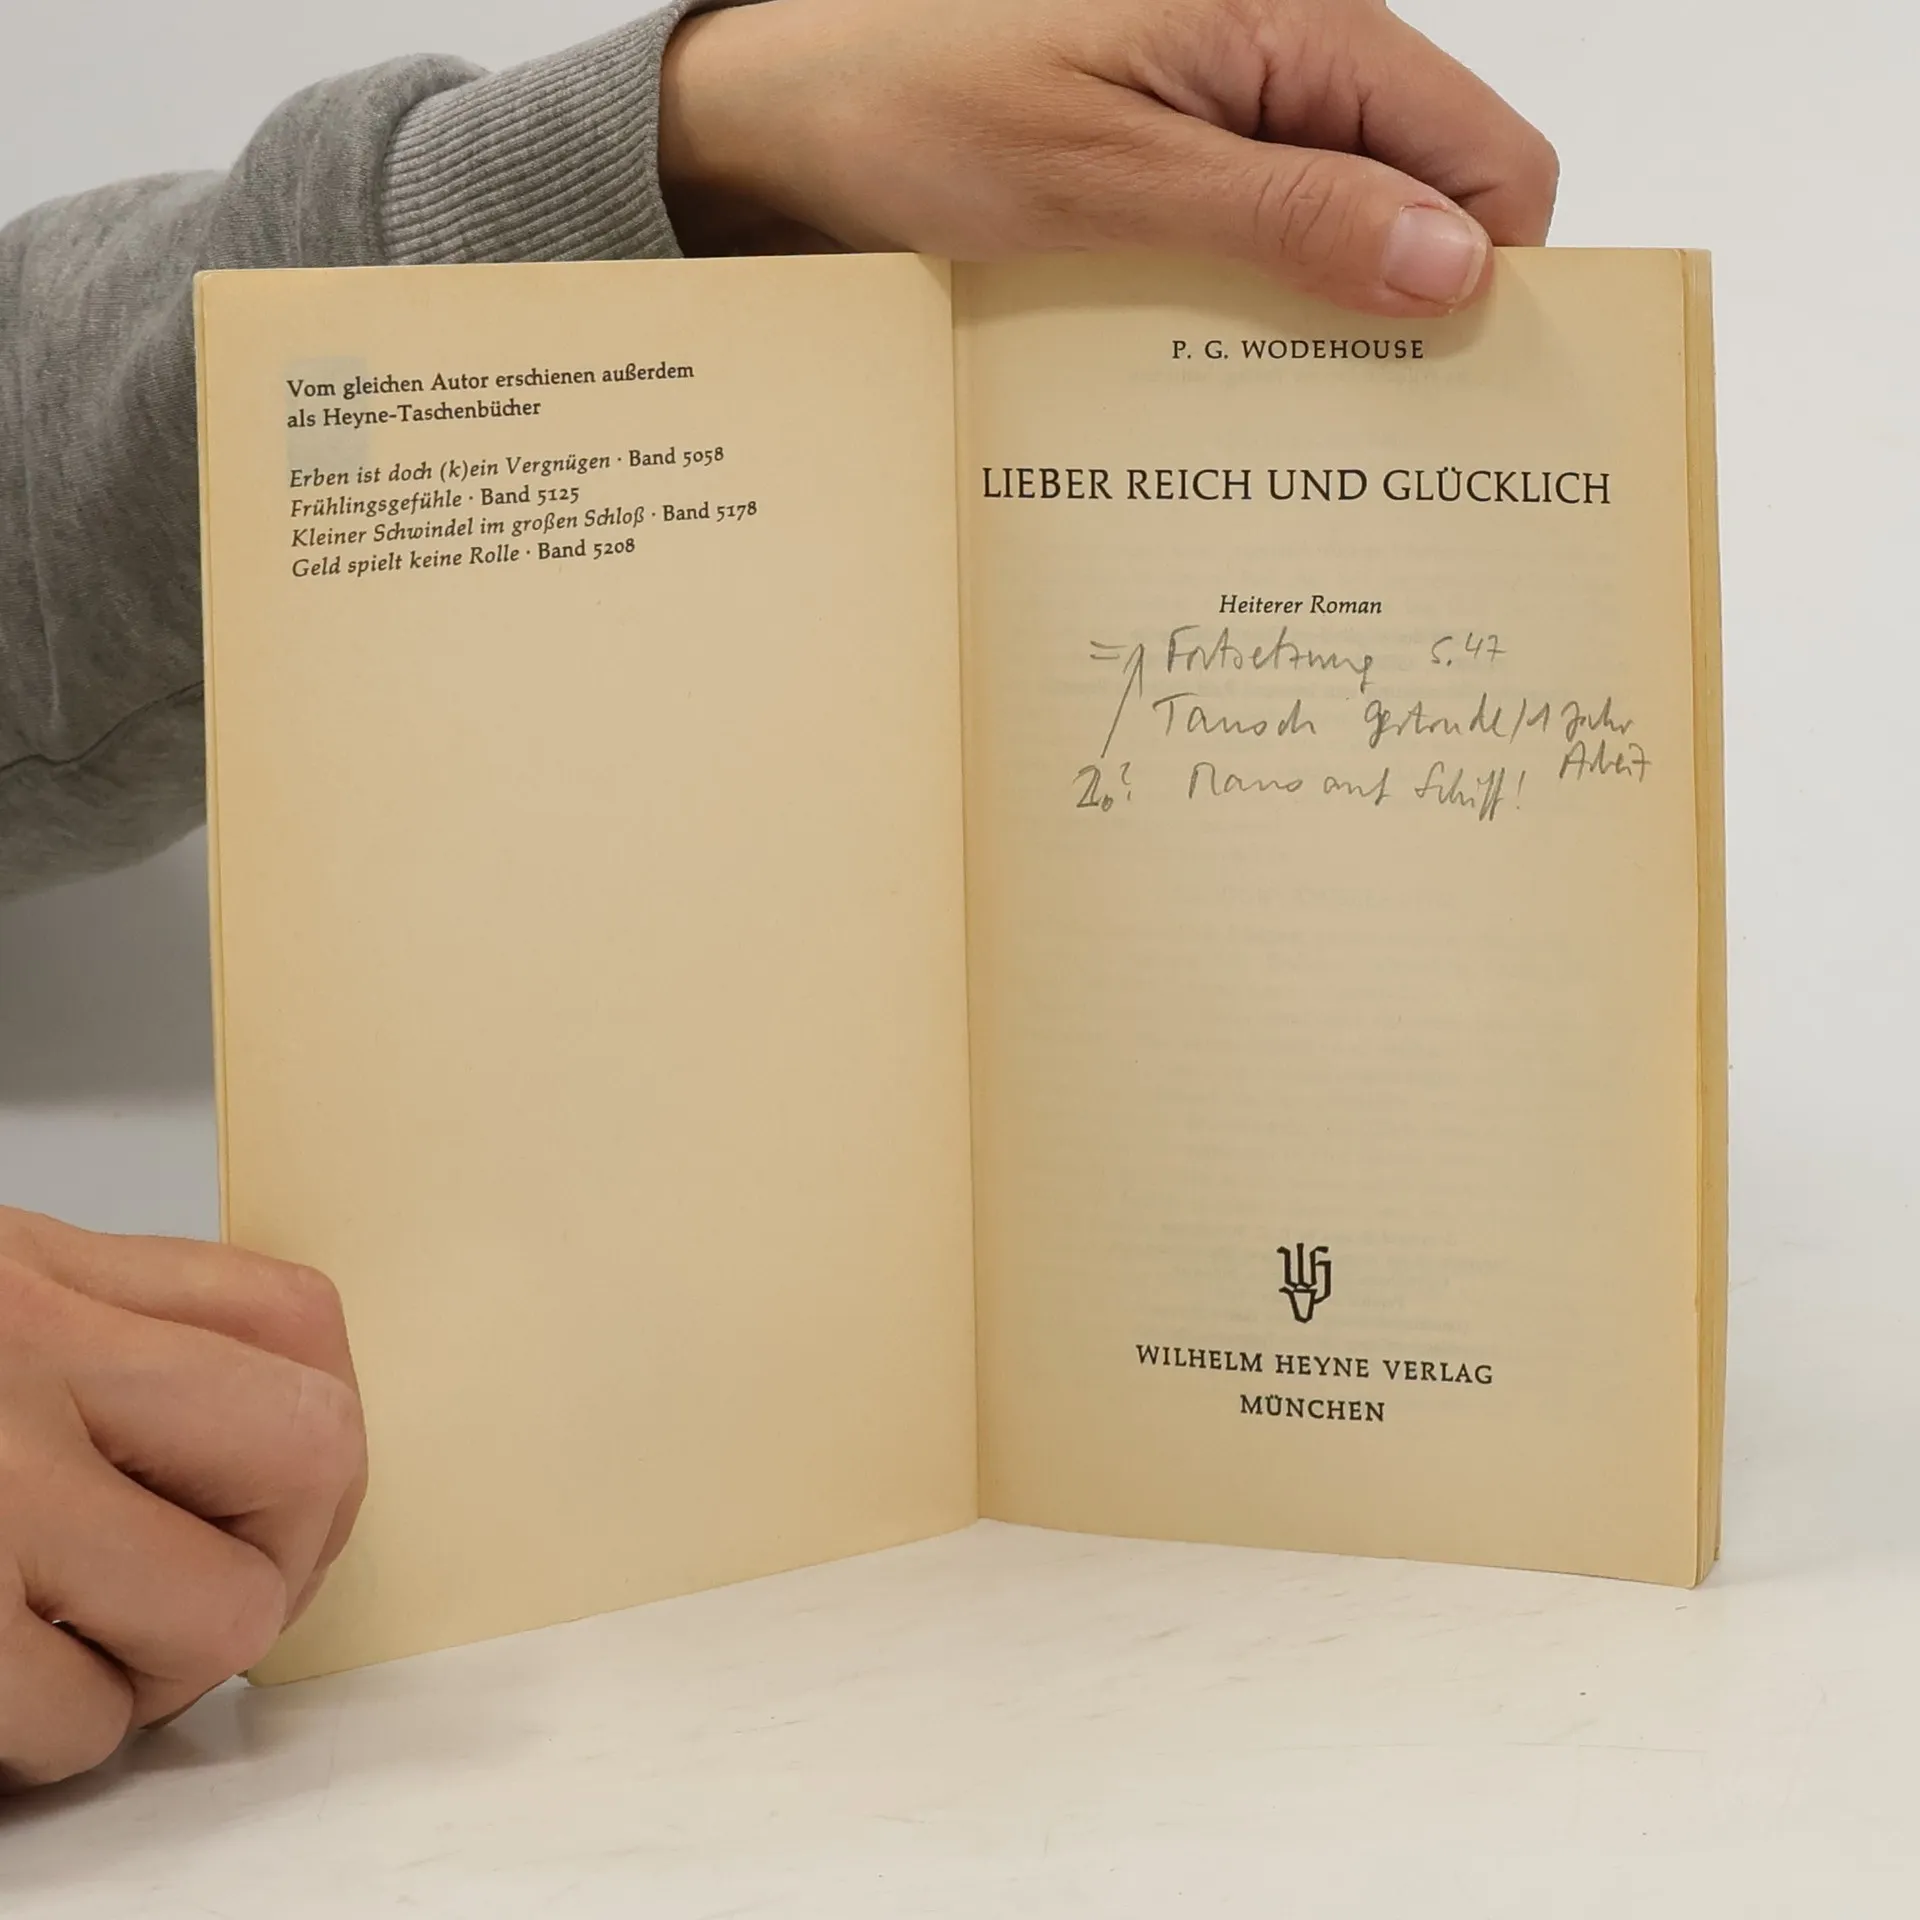 Vom gleichen Autor erschienen außerdem
als Heyne-Taschenbücher
Erben ist doch (k)ein Vergnügen · Band 5058
Frühlingsgefühle · Band 5125
Kleiner Schwindel im großen Schloß · Band 5178
Geld spielt keine Rolle · Band 5208
P. G. WODEHOUSE
LIEBER REICH UND GLÜCKLICH
Heiterer Roman
= Fortsetzung S. 47
Tausch Gertrude/1 Jahr
Arbeit
? Maus auf Schiff!
WILHELM HEYNE VERLAG
MÜNCHEN